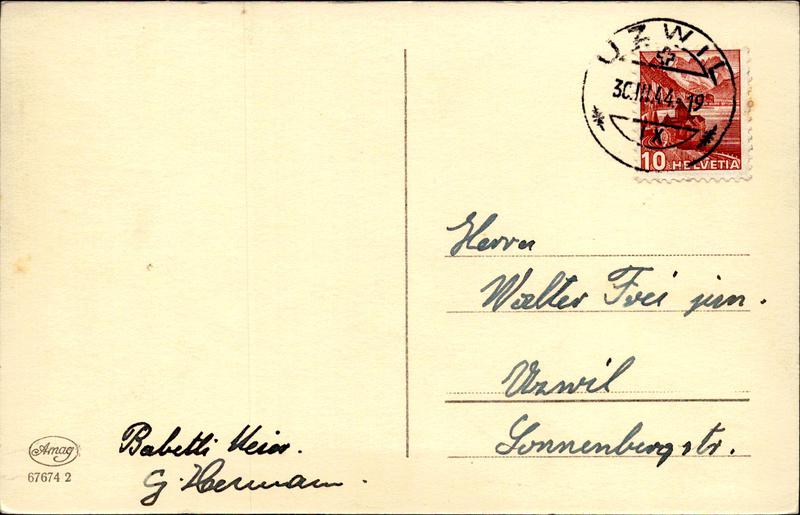 UZWIL
30.III.44.-19
10 HELVETIA
Herrn
Walter Frei jun.
Uzwil
Sonnenbergstr.
Babettli Meier.
G. Hermann.
Amag
67674 2